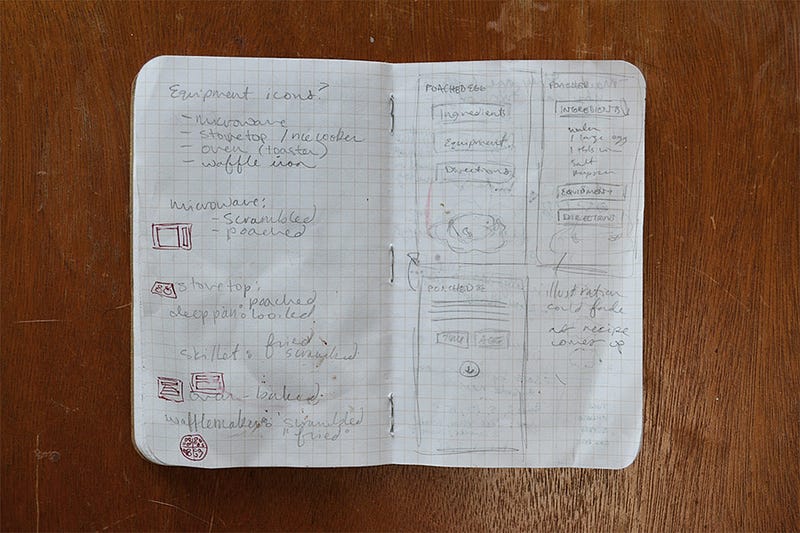 Equipment icons?
- microwave
- stovetop / rice cooker
- oven (toaster)
- waffle iron
microwave:
- scrambled
- poached
stovetop:
poached
deep pan: boiled
fried
skillet: scrambled
oven - baked
wafflemaker: scrambled
"fried"
POACHED EGG
Ingredients
Equipment
Directions
POACHED
INGREDIENTS
water
1 large egg
salt
EQUIPMENT
DIRECTIONS
POACHED
illustration
could fade
as recipe
comes up